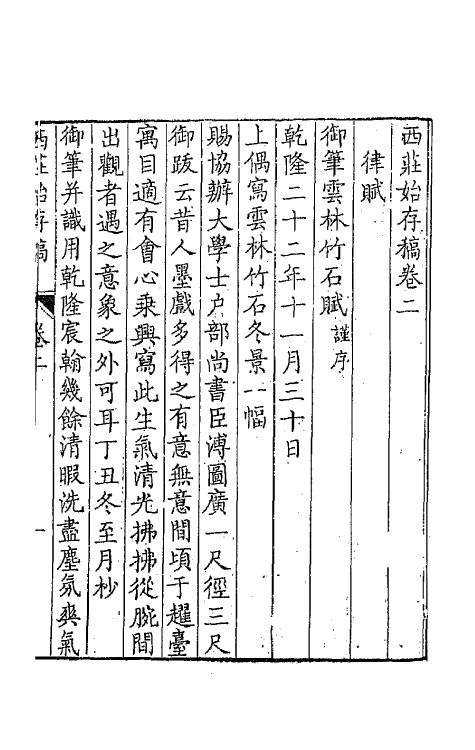 西莊始存稿卷二
律賦
御筆雲林竹石賦謹序
乾隆二十二年十一月三十日
上偶寫雲林竹石冬景一幅
賜協辦大學士户部尚書臣溥圖廣一尺徑三尺
御跋云昔人墨戲多得之有意無意間頃于趯臺
寓目適有會心乘興寫此生氣清光拂拂從腕間
出觀者遇之意象之外可耳丁丑冬至月杪
御筆并識用乾隆宸翰幾餘清暇洗盡塵氛爽氣
西莊始存稿 卷二 一